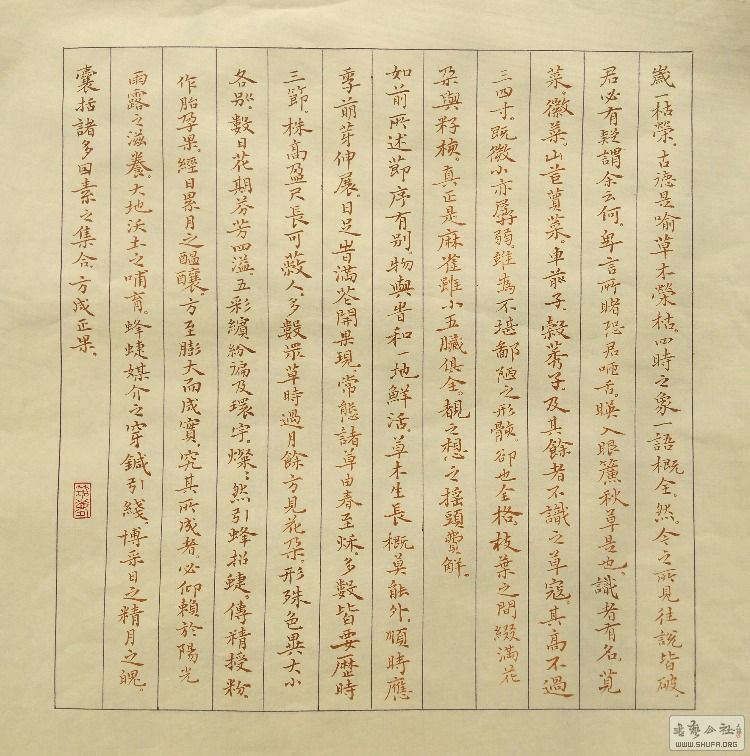 歲一枯榮、古德是喻草木榮枯、四時之象一語概全。然今之所見往說皆破、
君必有疑謂余云何。卑言所睹恐君咂舌。瞋入眼簾秋草是也、識者有名。莧
菜、薇菜。山苣蕒菜。車前子、穀莠子。及其餘者不識之草寇。其高不過
三四寸。既微小亦孱弱。雖為不堪鄙陋之形骸。卻也全格。枝葉之間綴滿花
朶與籽棟。真正是麻雀雖小五臟俱全。覩之想之摇頭費解。
如前所述節序有别。物與昔和一地鮮活、草木生長概莫能外、順時應
季萌芽伸展。日足時滿花開果現、常態諸草由春至秌。多數皆要歷時
三節。株高盈尺長可蔽人。多數眾草時過月餘方見花朶。形殊色異大小
各别。數日花期芬芳四溢、五彩繽紛徧及環宇。燦〻然引蜂招蜨、傳精授粉、
作胎孕果。經日累月之醞釀。方至膨大而成實、究其所成者。必仰賴於陽光
雨露之滋養。大地沃土之哺育。蜂蜨媒介之穿鍼引綫、博采日之精月之魄。
囊括諸多因素之集合、方成正果。
WWW.SHUFA.ORG